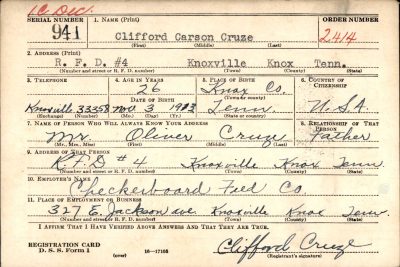 16 Dec.
SERIAL NUMBER 1. NAME (Print) ORDER NUMBER
941 Clifford Carson Cruze 2414
(First) (Middle) (Last)
2. ADDRESS (Print)
R. F. D. #4 Knoxville Knox Tenn.
(Number and street or R. F. D. number) (Town) (County) (State)
3. TELEPHONE 4. AGE IN YEARS 5. PLACE OF BIRTH 6. COUNTRY OF CITIZENSHIP
26 Knox Co.
DATE OF BIRTH (Town or county)
Knoxville 33358 Nov 3 1913 Tenn U.S.A.
(Exchange) (Number) (Mo.) (Day) (Yr.) (State or country)
7. NAME OF PERSON WHO WILL ALWAYS KNOW YOUR ADDRESS 8. RELATIONSHIP OF THAT PERSON
Mr. Oliver Cruze Father
(Mr., Mrs., Miss) (First) (Middle) (Last)
9. ADDRESS OF THAT PERSON
R.F.D #4 Knoxville Knox Tenn
(Number and street or R. F. D. number) (Town) (County) (State)
10. EMPLOYER'S NAME
Checkerboard Feed Co.
11. PLACE OF EMPLOYMENT OR BUSINESS
327 E. Jackson ave Knoxville Knox Tenn
(Number and street or R. F. D. number) (Town) (County) (State)
I AFFIRM THAT I HAVE VERIFIED ABOVE ANSWERS AND THAT THEY ARE TRUE.
REGISTRATION CARD
D. S. S. Form 1 16—17105 Clifford Cruze
(Registrant's signature)